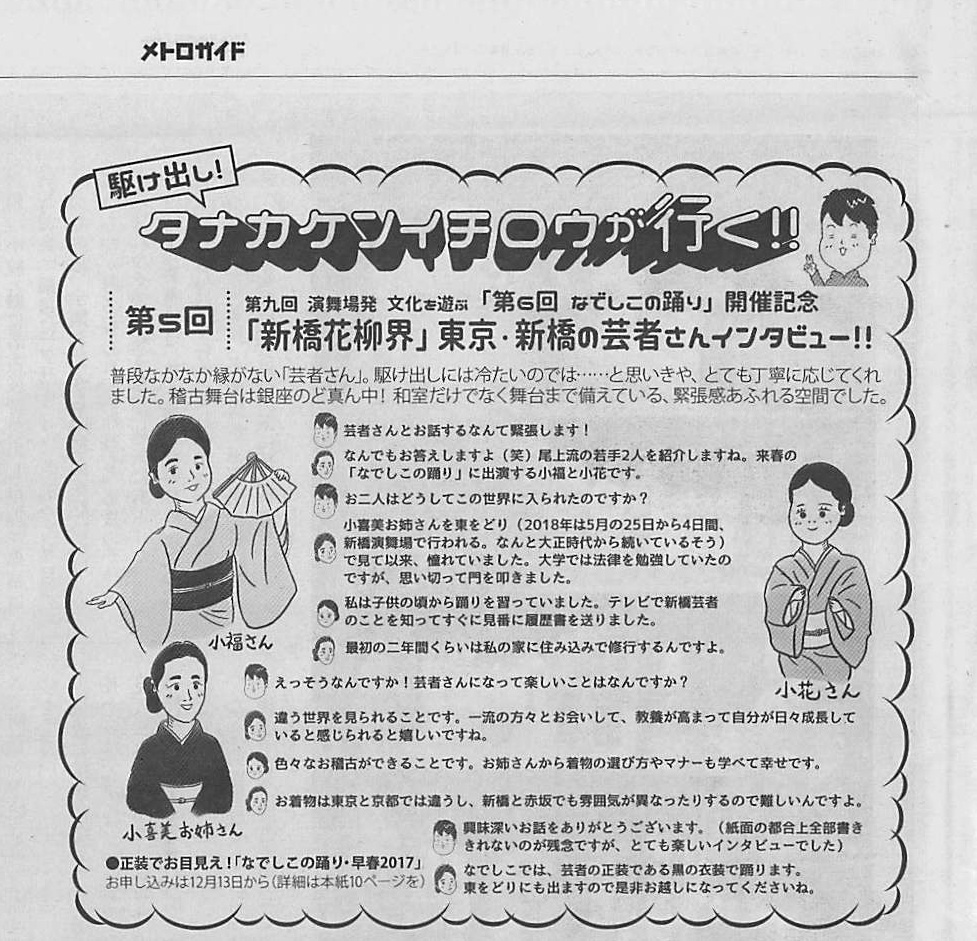 メトロガイド
駆け出し!
タナカケンイチロウが行く!!
第5回
第九回 演舞場発 文化を遊ぶ 「第6回 なでしこの踊り」開催記念
「新橋花柳界」東京・新橋の芸者さんインタビュー!!
普段なかなか縁がない「芸者さん」。駆け出しには冷たいのでは……と思いきや、とても丁寧に応じてくれ
ました。稽古舞台は銀座のど真ん中! 和室だけでなく舞台まで備えている、緊張感あふれる空間でした。
芸者さんとお話するなんて緊張します!
なんでもお答えしますよ(笑)尾上流の若手2人を紹介しますね。来春の
「なでしこの踊り」に出演する小福と小花です。
お二人はどうしてこの世界に入られたのですか?
小喜美お姉さんを東をどり(2018年は5月の25日から4日間、
新橋演舞場で行われる。なんと大正時代から続いているそう)
で見て以来、憧れていました。大学では法律を勉強していたの
ですが、思い切って門を叩きました。
私は子供の頃から踊りを習っていました。テレビで新橋芸者
のことを知ってすぐに見番に履歴書を送りました。
小福さん
最初の二年間くらいは私の家に住み込みで修行するんですよ。
小花さん
えっそうなんですか!芸者さんになって楽しいことはなんですか?
違う世界を見られることです。一流の方々とお会いして、教養が高まって自分が日々成長して
いると感じられると嬉しいですね。
色々なお稽古ができることです。お姉さんから着物の選び方やマナーも学べて幸せです。
お着物は東京と京都では違うし、新橋と赤坂でも雰囲気が異なったりするので難しいんですよ。
小喜美お姉さん
興味深いお話をありがとうございます。(紙面の都合上全部書き
きれないのが残念ですが、とても楽しいインタビューでした)
なでしこでは、芸者の正装である黒の衣装で踊ります。
東をどりにも出ますので是非お越しになってくださいね。
●正装でお目見え!「なでしこの踊り・早春2017」
お申し込みは12月13日から(詳細は本紙10ページを)